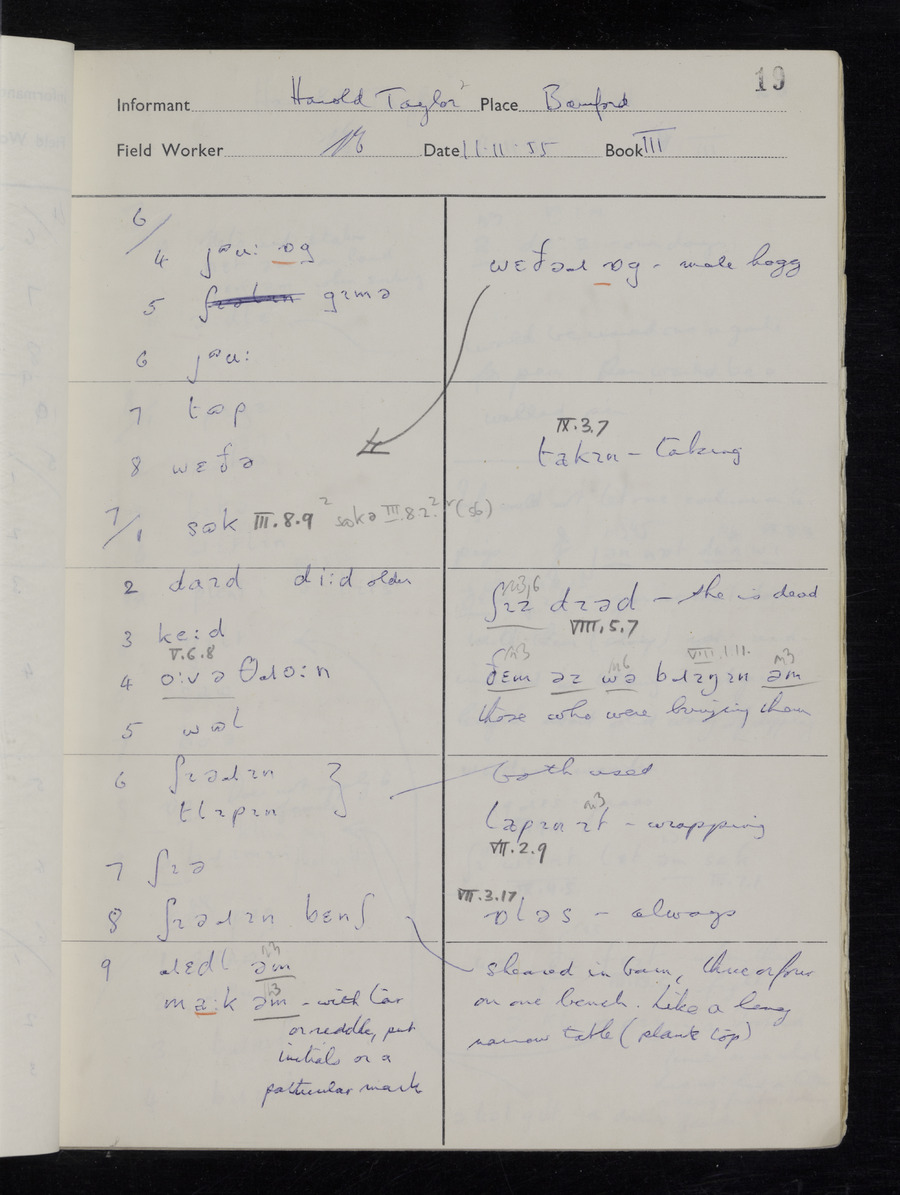 19
Informant Harold Taylor² Place Bamford
Field Worker Date 11.11.55 Book III
6/
4 jəu: ɒg
5 gɪmə
6 jəu:
7 təp
8 wɛðə
7/1 sək III.8.9 ² səkə III.8.2.
2 daɪd di:d older
3 ke:d
V.6.8
4 o:və θɹo:n
5 wəl
6 ʃɪəɹɪn }
tlɪpɪn
7 ʃɪə
8 ʃɪəɹɪn bɛnʃ
9 ɹɛdl əm n3
ma:k əm n3 - with tar
or reddle, put
initials or a
particular mark
wɛðəɹ ɒg - male hogg
IX.3.7
takɪn - taking
n3,6
ʃɪz dɪəd - she is dead
VIII.5.7
n3 n6 VIII.1.11. n3
ðɛm əz wə bɹɪŋɪn əm
those who were bringing them
both used
n3
lapɪn ɪt - wrapping
VII.2.9
VII.3.17
ɒləs - always
sheared in barn, three or four
on one bench. Like a long
narrow table (plank top)